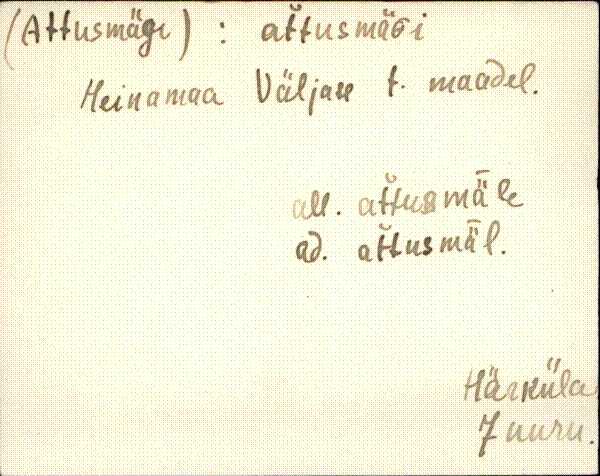 (Attusmägi) : at̆tusmäGi
Heinamaa Väljase t. maadel.
all. at̆tusmǟle
ad. at̆tusmǟl.
Härküla